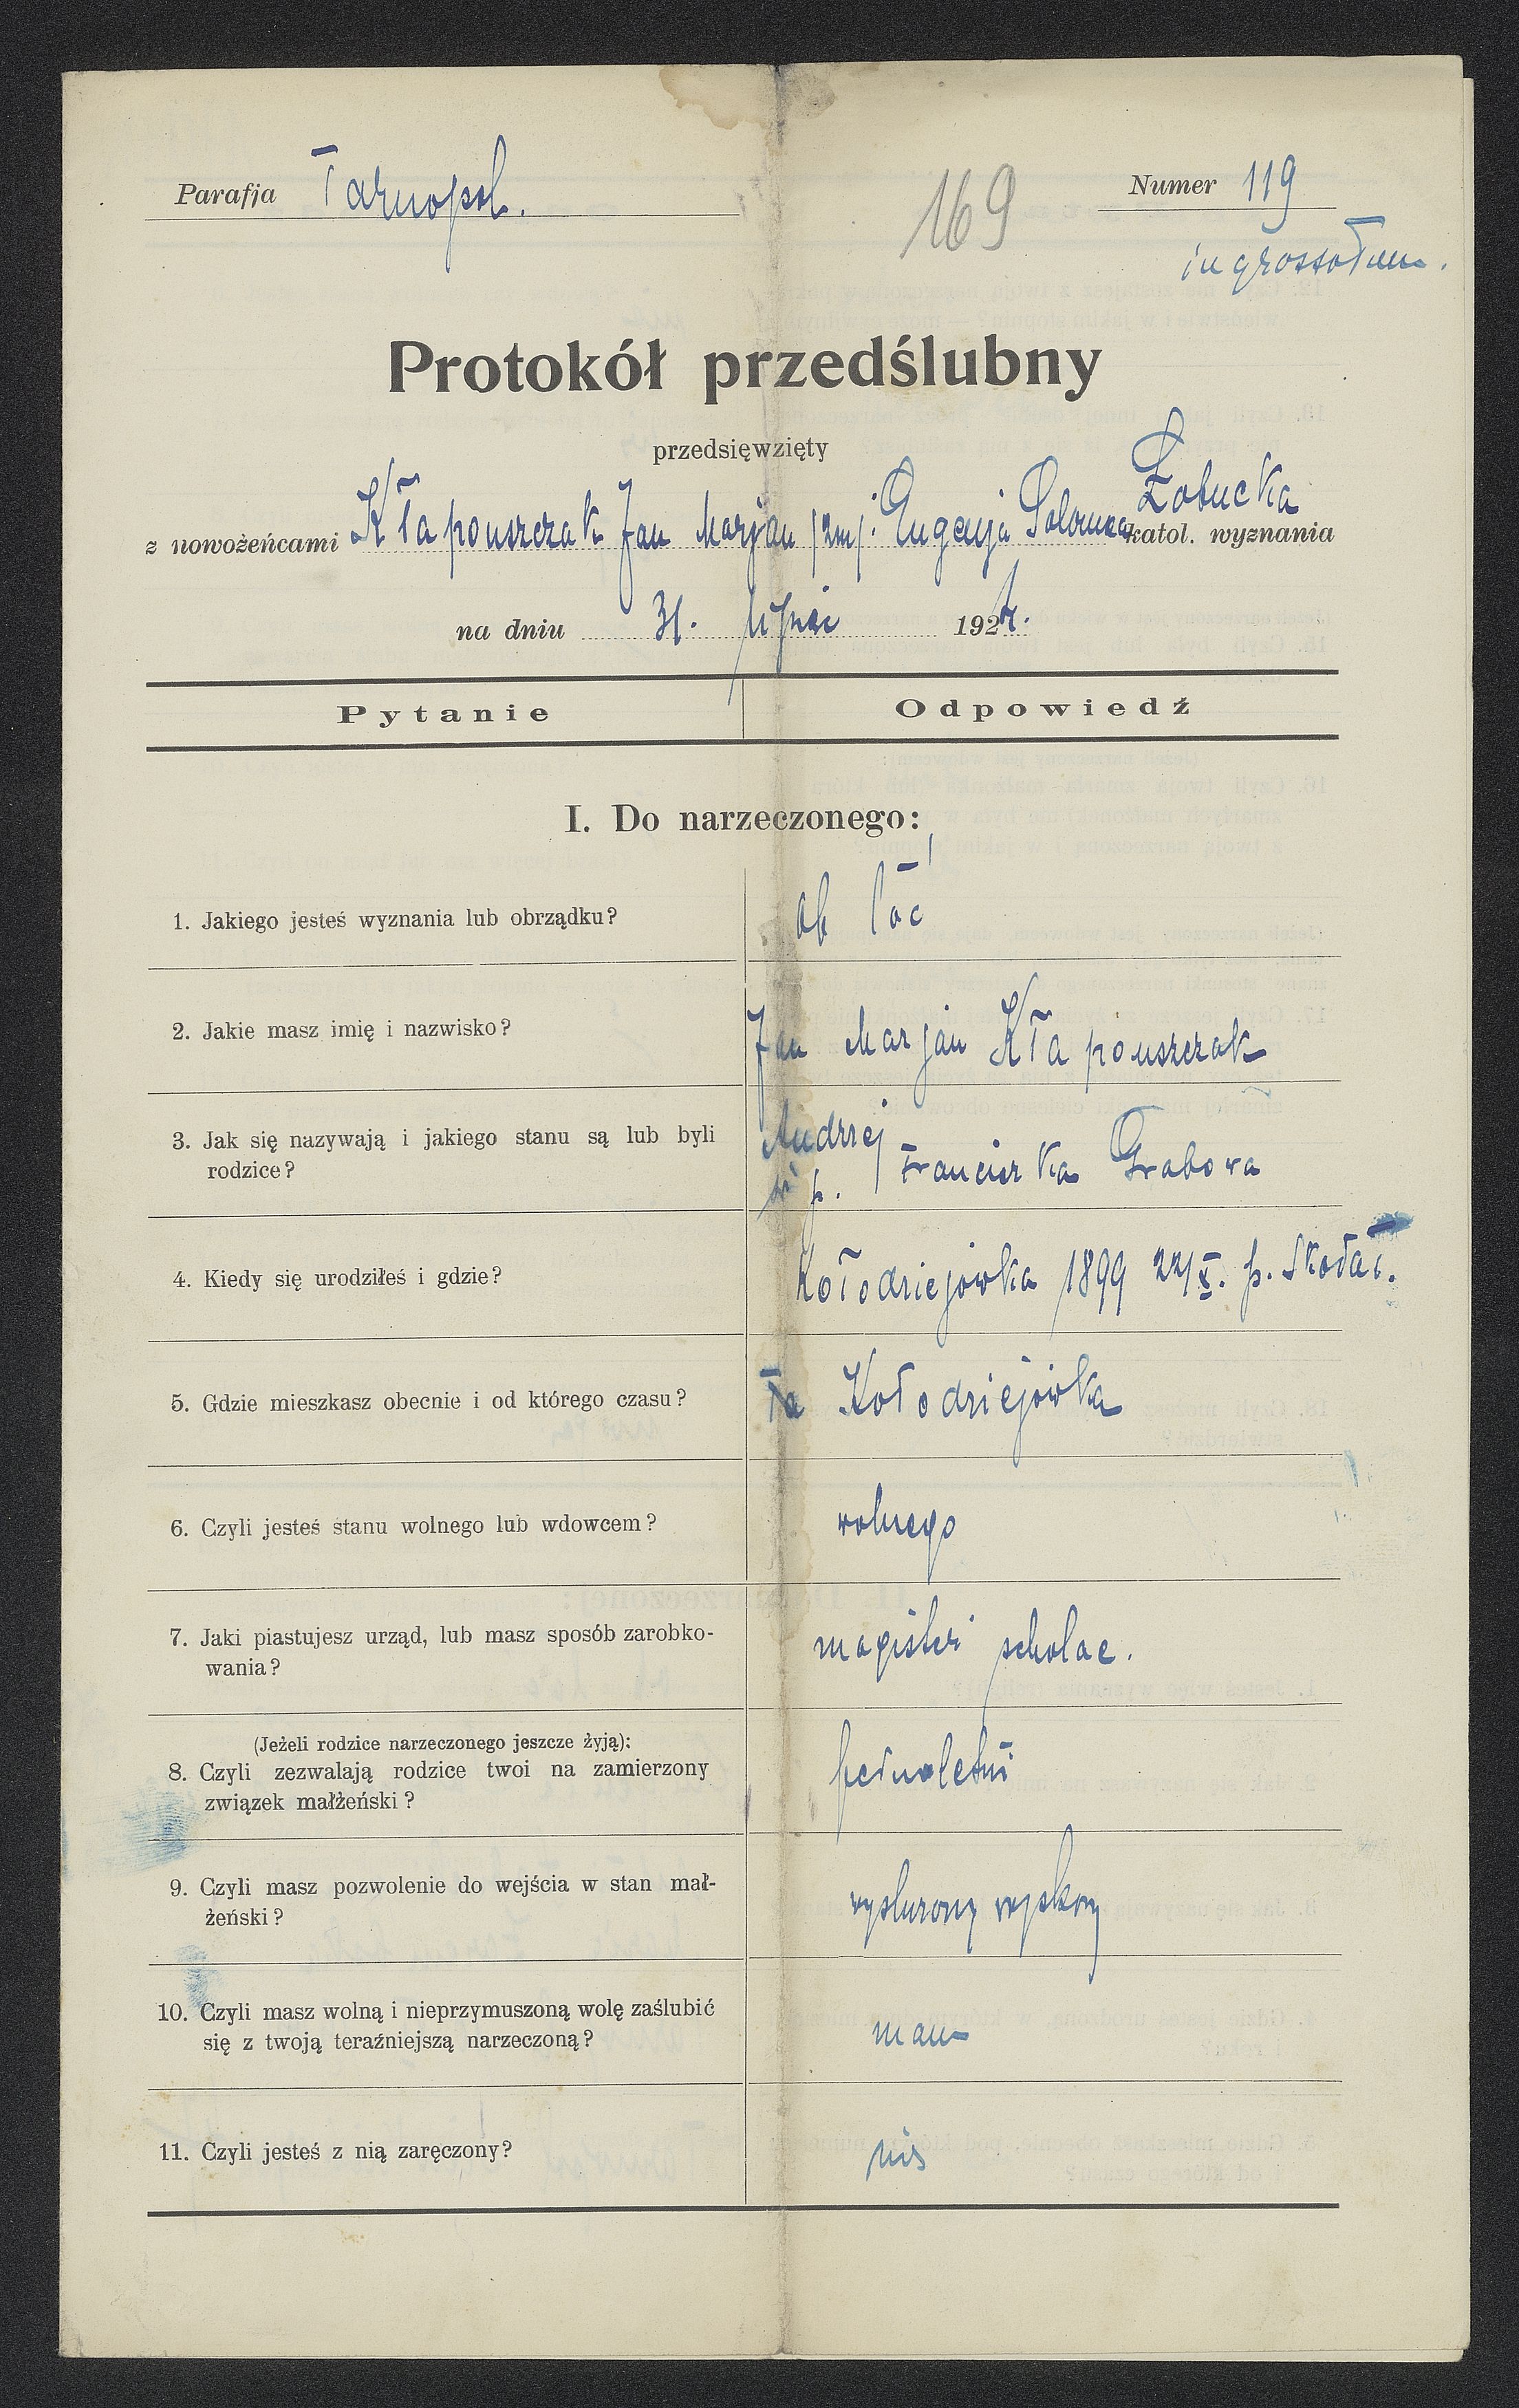 Parafja Tarnopol.
169
Numer 119
ingrossatum.
Protokół przedślubny
przedsięwzięty
Łobucka
z nowożeńcami Kłapouszczak Jan Marjan Eugenja Salomea katol. wyznania
na dniu 31. lipca 192
Pytanie Odpowiedź
I. Do narzeczonego:
1. Jakiego jesteś wyznania lub obrządku? ob łać
2. Jakie masz imię i nazwisko? Jan Marjan Kłapouszczak
3. Jak się nazywają i jakiego stanu są lub byli Andrzej
rodzice? ś p. Franciszka Grabowa
4. Kiedy się urodziłeś i gdzie? Kołodziejówka 1899 22/X. p. Skałat.
5. Gdzie mieszkasz obecnie i od którego czasu? Kołodziejówka
6. Czyli jesteś stanu wolnego lub wdowcem? wolnego
7. Jaki piastujesz urząd, lub masz sposób zarobko-
wania? magister scholae.
(Jeżeli rodzice narzeczonego jeszcze żyją):
8. Czyli zezwalają rodzice twoi na zamierzony
związek małżeński? pełnoletni
9. Czyli masz pozwolenie do wejścia w stan mał-
żeński? wysłużony wojskowy
10. Czyli masz wolną i nieprzymuszoną wolę zaślubić
się z twoją teraźniejszą narzeczoną? mam
11. Czyli jesteś z nią zaręczony? nie